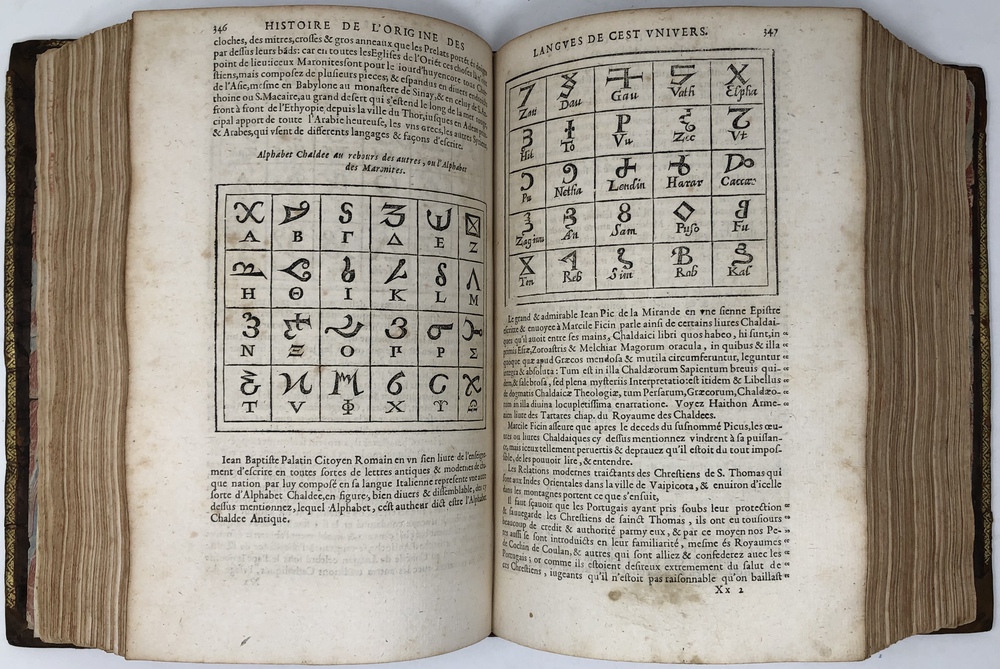 346 HISTOIRE DE L'ORIGINE DES
cloches, des mitres, crosses & gros anneaux que les Prelats portẽt, ẽn
par dessus leurs bâds: car en toutes les Eglises de l'Oriẽt ces choses
point de lieu: iceux Maronites sont pour le iourd'huy encore tous Chre-
stiens, mais composez de plusieurs pieces, & espandus en diuers endroits
de l'Asie, mesme en Babylone au monastere de Sinay, & en celuy de
thoine ou S. Macaire, au grand desert qui s'estend le long de la mer rouge,
front à front de l'Ethyopie depuis la ville du Thor, iusques en Adem
cipal apport de toute l'Arabie heureuse, les vns grecs, les autres Syriens,
& Arabes, qui vsent de differents langages & façons d'escrire.
Alphabet Chaldee au rebours des autres, ou l'Alphabet
des Maronites.
A B Γ Δ E Z
H Θ I K L M
N Ξ O P P Σ
T V Φ X Υ Ω
Iean Baptiste Palatin Citoyen Romain en vn sien liure de l'enseigne-
ment d'escrire en toutes sortes de lettres antiques & modernes de cha-
que nation par luy composé en sa langue Italienne represente vne autre
sorte d'Alphabet Chaldee, en figure, bien diuers & dissemblable, des cy
dessus mentionnez, lequel Alphabet, cest autheur dict estre l'Alphabet
Chaldee Antique.
LANGVES DE CEST VNIVERS. 347
Zau Dau Gau Vath Elpha
Hil To Vu Zec Vt
Pu Netha Lendin Harar Caccar
Zagiuu An Sam Puso Fu
Ten Reb Sin Rab Kal
Le grand & admirable Iean Pic de la Mirande en vne sienne Epistre
escrite & enuoyee à Marcile Ficin parle ainsi de certains liures Chaldai-
ques qu'il auoit entre ses mains, Chaldaici libri quos habeo, hi sunt, in
primis Esræ, Zoroastris & Melchiar Magorum oracula, in quibus & illa
quoque quæ apud Græcos mendosa & mutila circumferuntur, leguntur
integra & absoluta: Tum est in illa Chaldæorum Sapientum breuis qui-
dem, & salebrosa, sed plena mysteriis Interpretatio: est itidem & Libellus
de dogmatis Chaldaicæ Theologiæ, tum Persarum, Græcorum, Chaldæo-
rum in illa diuina locupletissima enarratione. Voyez Haithon Arme-
nien liure des Tartares chap. du Royaume des Chaldees.
Marcile Ficin asseure que apres le deceds du susnommé Picus, les œu-
ures ou liures Chaldaiques cy dessus mentionnez vindrent à sa puissan-
ce, mais iceux tellement peruertis & deprauez qu'il estoit du tout impos-
sible, de les pouuoir lire, & entendre.
Les Relations modernes traictants des Chrestiens de S. Thomas qui
sont aux Indes Orientales dans la ville de Vaipicota, & enuiron d'icelle
dans les montagnes portent ce que s'ensuit,
Il faut sçauoir que les Portugais ayant pris soubs leur protection
& sauuegarde les Chrestiens de sainct Thomas, ils ont eu tousiours
beaucoup de credit & authorité parmy eux, & par ce moyen nos Pe-
res aussi se sont introduicts en leur familiarité, mesme és Royaumes
de Cochin de Coulan, & autres qui sont alliez & confederez auec les
Portugais; or comme ils estoient desireux extremement du salut de
ces Chrestiens, iugeants qu'il n'estoit pas raisonnable qu'on baillast
Xx 2